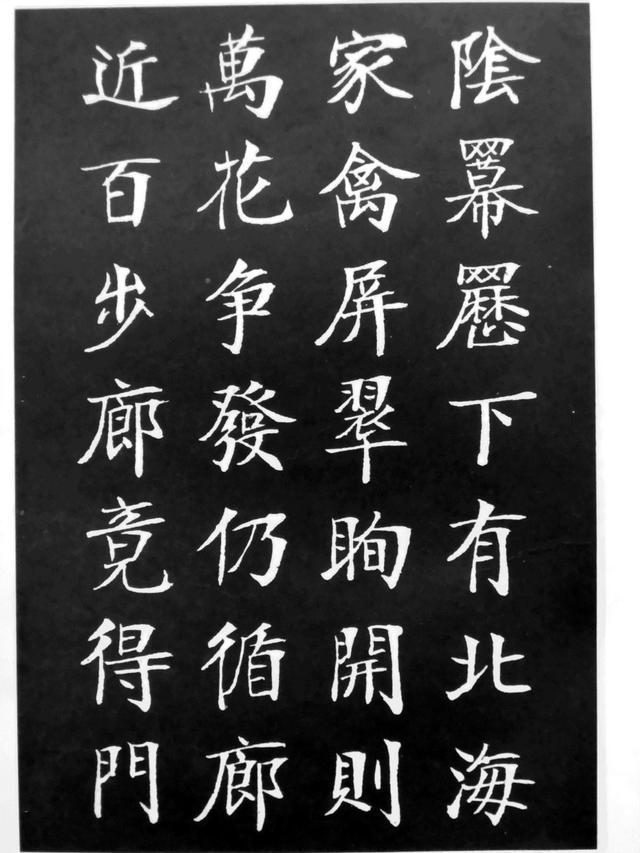 陰冪䍥下有北海
家禽屏翠眴開則
萬花争發仍循廊
近百步廊竟得門